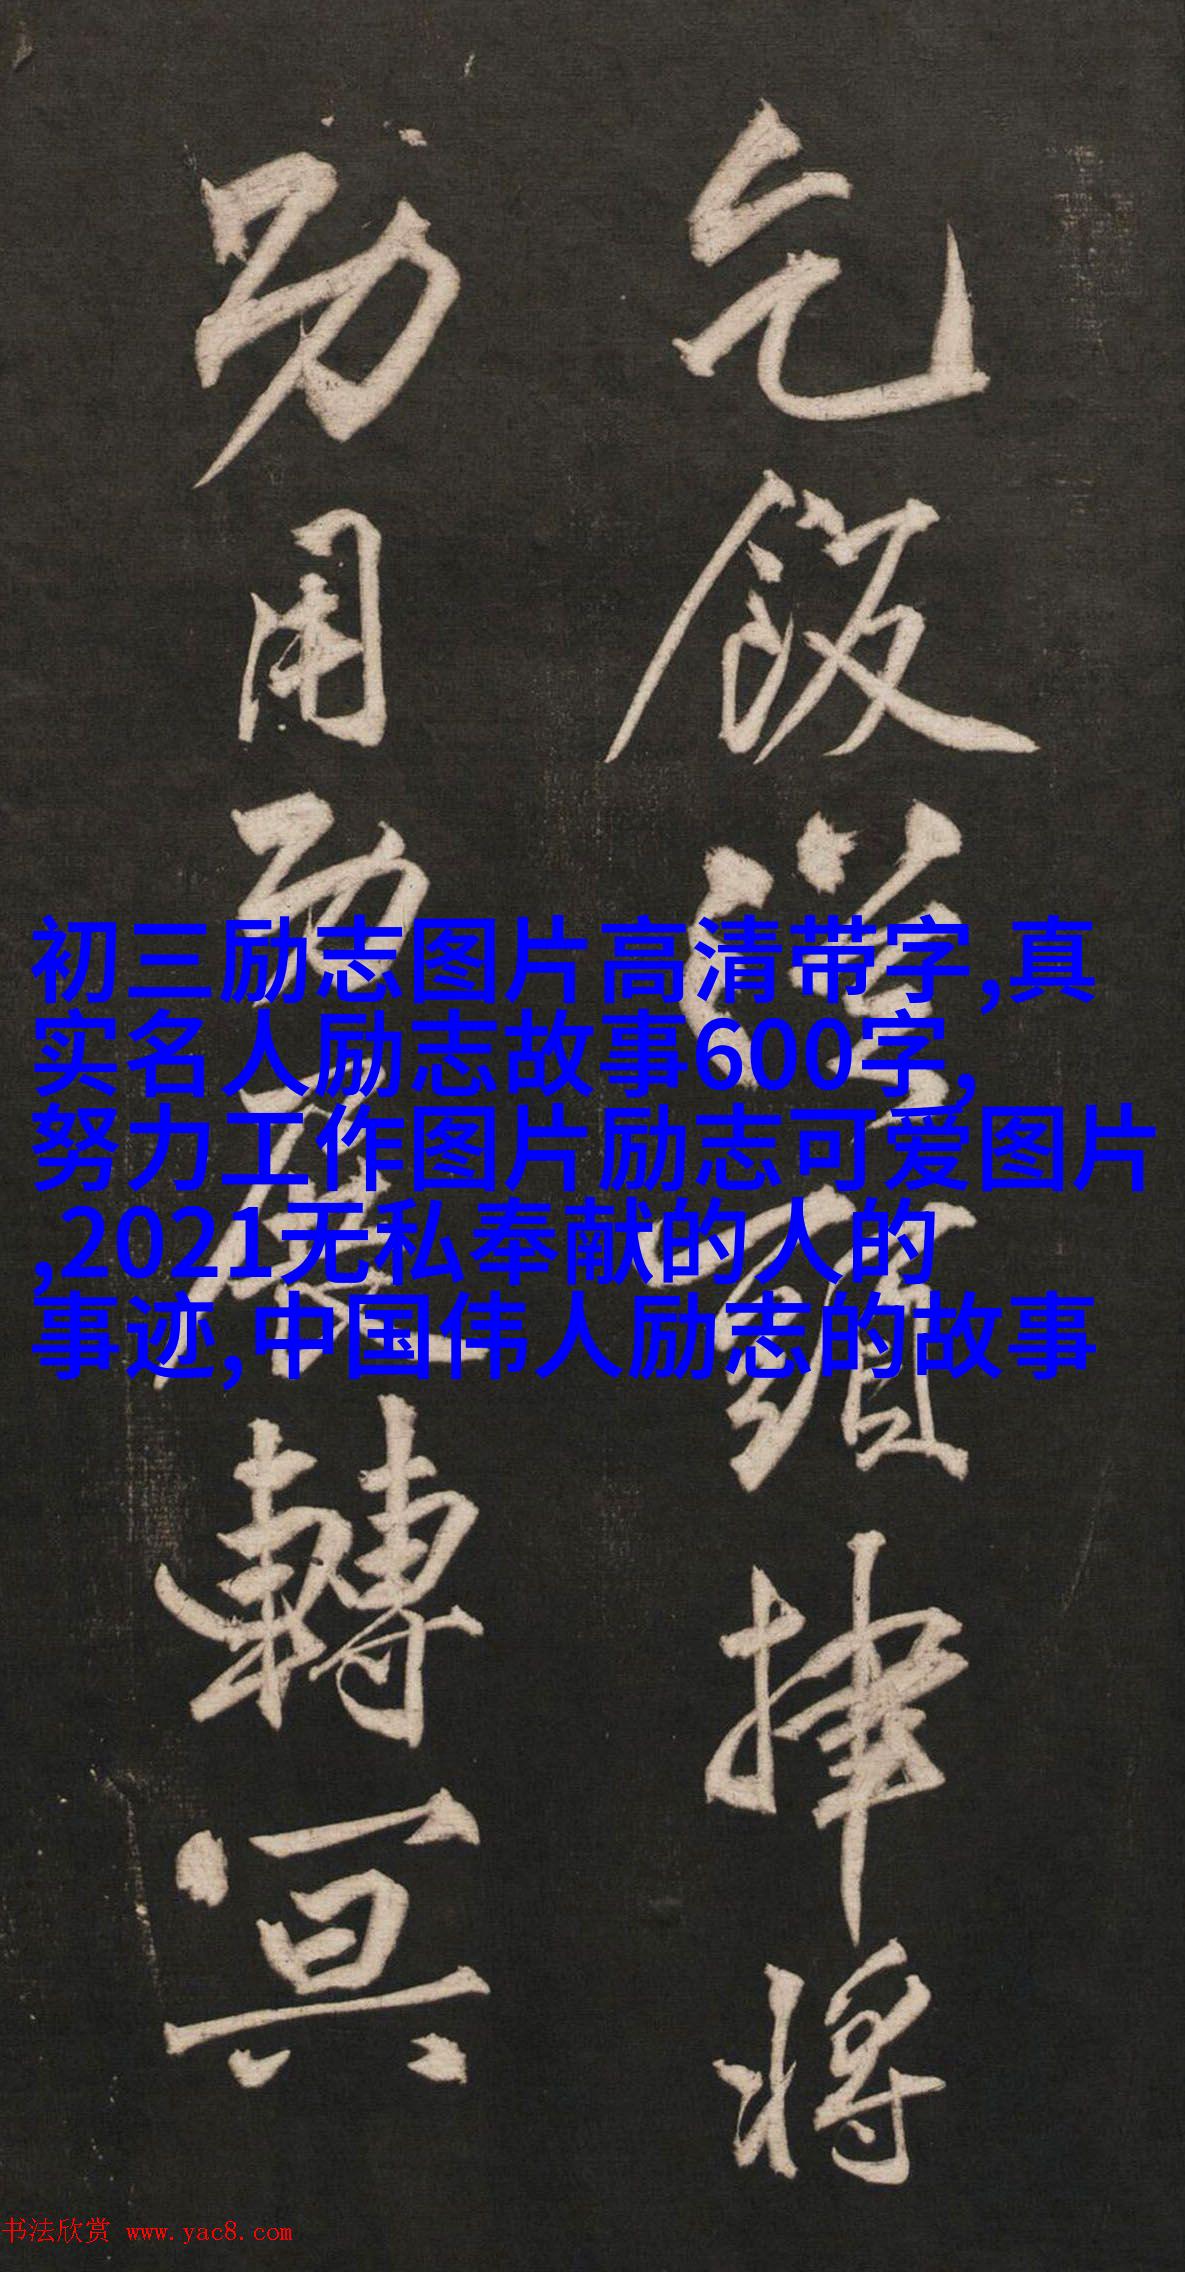 乞飯頭將
功用功轉冥
初三励志图片高清带字,真
实名人励志故事600字,
努力工作图片励志可爱图片
,2021无私奉献的人的
事迹,中国伟人励志的故事
书法欣赏 www.yac8.com